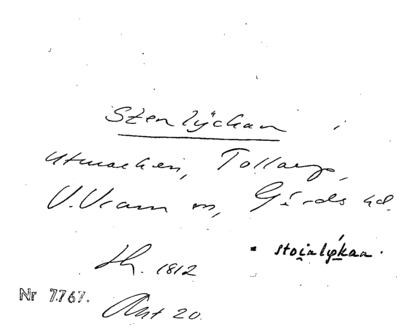 Stenlyckan i
utmarken, Tollarp,
V. Vram sn, Gärds hd.
stoinlykan.
Lh. 1812
Nr 7767.
Akt 20.